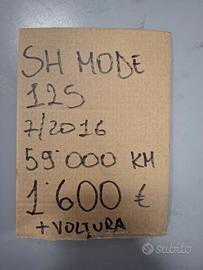 SH MODE
125
7/2016
59'000 KM
1'600 €
+ VOLTURA
subito